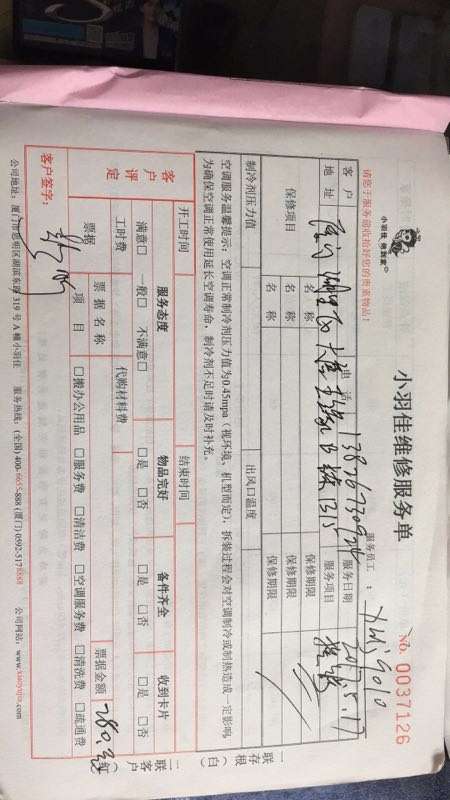 小羽佳维修服务单
小羽佳 做到家
No. 0037126
请您于服务前收拾好您的贵重物品！
服务员工：
客户
电话
服务日期
2017.5.17
地址
服务项目
保修项目
名称
保修期限
名称
保修期限
名称
保修期限
制冷剂压力值
出风口温度
空调服务温馨提示：空调正常制冷剂压力值为0.45mpa（视环境、机型而定），拆装过程会对空调制冷或制热造成一定影响
为确保空调正常使用延长空调寿命，制冷剂不足时请及时补充。
开工时间
结束时间
客户评定
服务态度
物品完好
备件齐全
收到卡片
满意□ 一般□ 不满意□
□是 □否
□是 □否
□是 □否
工时费
代购材料费
票据
票据名称
票据金额
项目
□搬办公用品 □服务费 □清洁费 □空调服务费 □清洗费 □疏通费
客户签字：
公司地址：厦门市思明区湖滨东路 319 号 A 幢小羽佳 服务热线：(全国) 400-6655-888 (厦门) 0592-5176888 公司网站：www.xiaoyujia.com
一联存根（白）
二联客户（红）